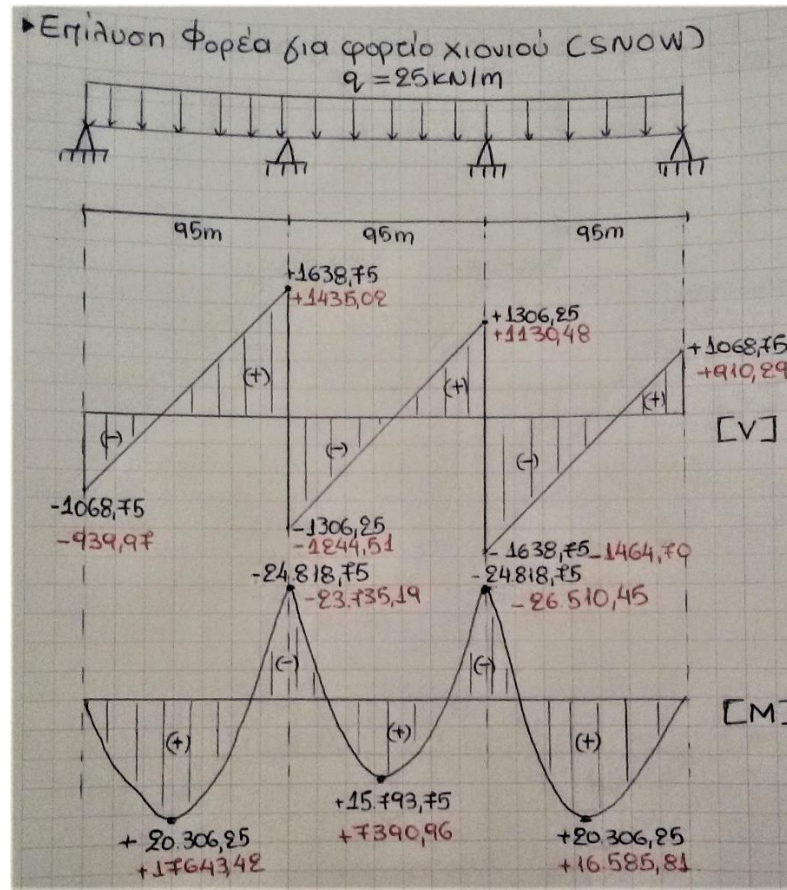 ▸Επίλυση Φορέα για φορτίο χιονιού (SNOW)
q = 25 kN/m
95m 95m 95m
+1638,75
+1435,02
+1306,25
+1130,48
+1068,75
+910,29
(+) (+) (+)
[V]
(-) (-) (-)
-1068,75
-939,97
-1306,25
-1244,51
-1638,75 -1464,70
-24.818,75
-23.735,19
-24.818,75
-26.510,45
(-) (-)
[M]
(+) (+) (+)
+15.793,75
+7390,96
+20.306,25
+17643,42
+20.306,25
+16.585,81